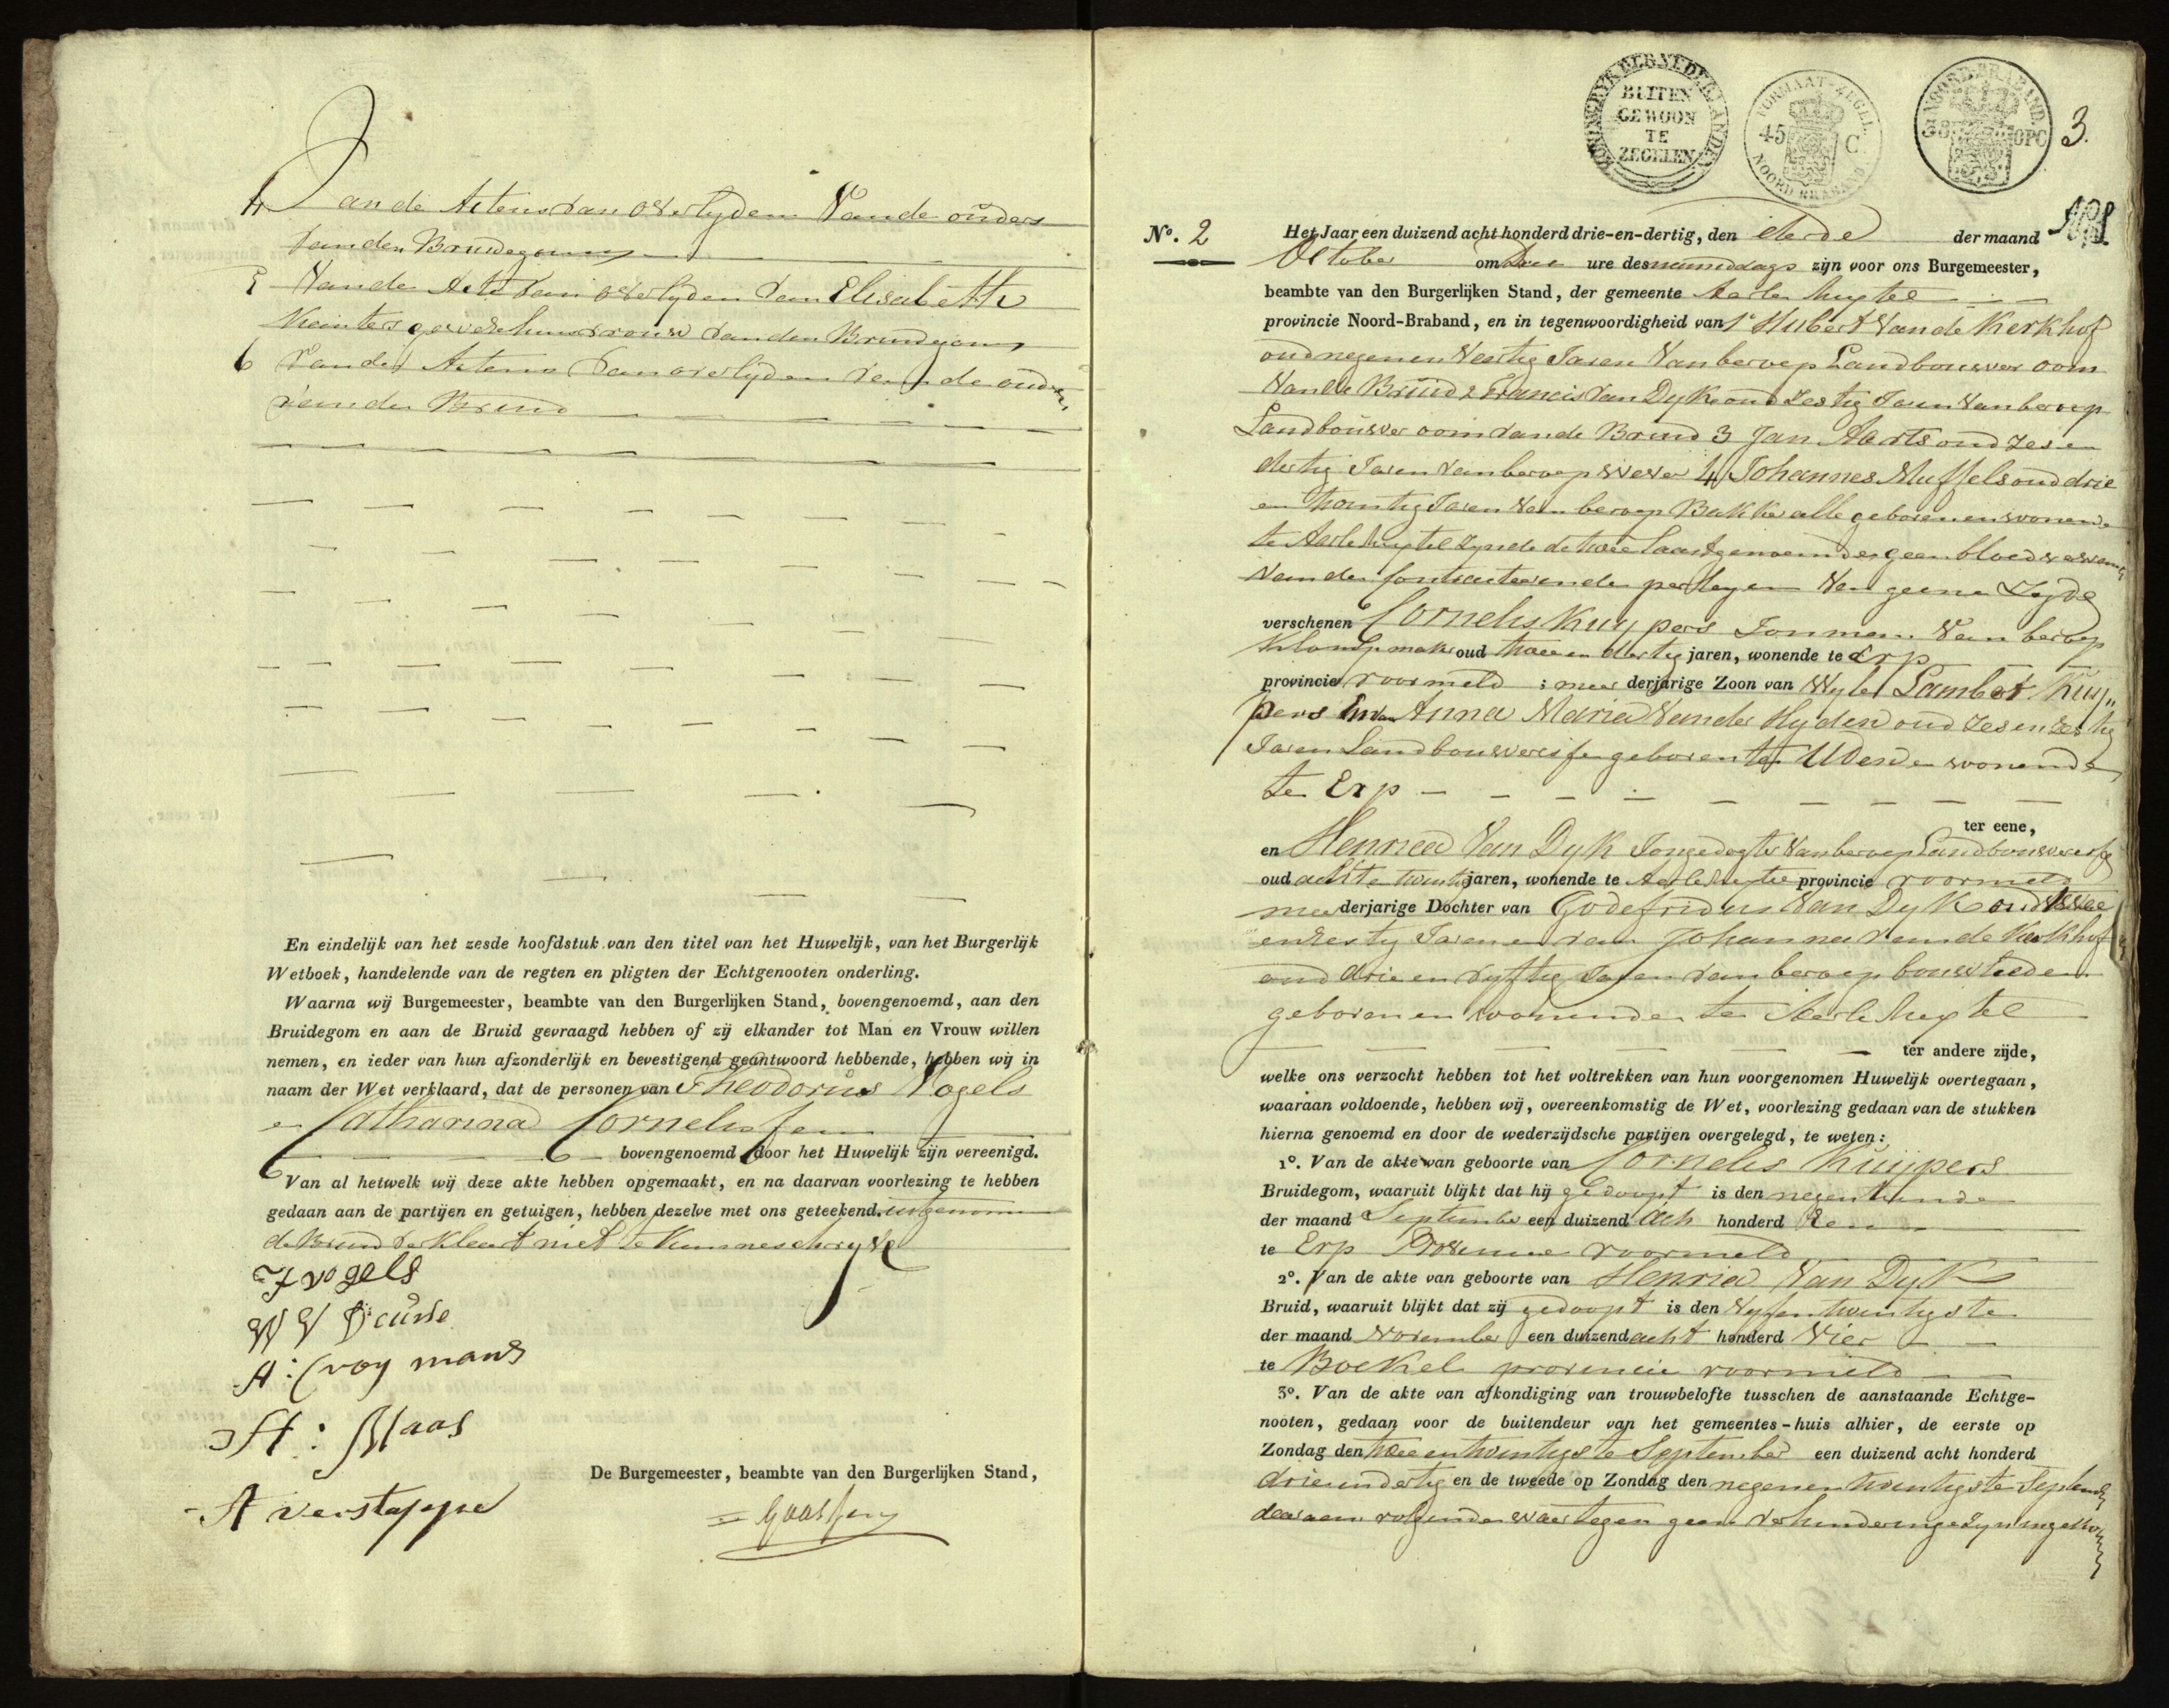 4 Van de Actens van overlyden Van de ouders
van den Bruidegom
5 Van de Acte van overlyden van Elisabeth
gewezehuisvrouw van den Bruidegom
6 Van de Actens van overlyden van de ouders
van de Bruid
En eindelijk van het zesde hoofdstuk van den titel van het Huwelijk, van het Burgerlijk
Wetboek, handelende van de regten en pligten der Echtgenooten onderling.
Waarna wij Burgemeester, beambte van den Burgerlijken Stand, bovengenoemd, aan den
Bruidegom en aan de Bruid gevraagd hebben of zij elkander tot Man en Vrouw willen
nemen, en ieder van hun afzonderlijk en bevestigend geantwoord hebbende, hebben wij in
naam der Wet verklaard, dat de personen van Theodorus Vogels
en Catharina Cornelissen
bovengenoemd door het Huwelijk zijn vereenigd.
Van al hetwelk wij deze akte hebben opgemaakt, en na daarvan voorlezing te hebben
gedaan aan de partijen en getuigen, hebben dezelve met ons geteekend. uitgenomen
de Bruid verklaart niet te kunne schryve
T vogels
A: Croymans
H: Maas
A verstappe
De Burgemeester, beambte van den Burgerlijken Stand,
KONINGRYK DER NEDERLANDEN
BUITEN
GEWOON
TE
ZEGELEN
FORMAAT-ZEGEL
45 C
NOORD BRABAND
NOORD-BRABAND
38 OPC
3.
No. 2 Het Jaar een duizend acht honderd drie-en-dertig, den derde der maand
October om Drie ure des namiddags zijn voor ons Burgemeester,
beambte van den Burgerlijken Stand, der gemeente Aarle Rixtel
provincie Noord-Braband, en in tegenwoordigheid van 1e Hubert Van de Kerkhof
oud negenenveertig Jaren Van beroep Landbouwer oom
Van de Bruid 2 Francis van Dyk oud zestig Jaren Van beroep
Landbouwer oom van de Bruid 3 Jan Aarts oud zes en
dertig Jaren van beroep wever 4 Johannes Muffels oud drie
en twintig Jaren van beroep Bakker alle geboren en wonende
te Aarle Rixtel zynde de twee laastgenoemde geen bloedverwante
van de contracteerende parteyen Van geene Zyde
verschenen Cornelis Kuypers Jonman Van beroep
Klompmaker oud twee en dertig jaren, wonende te Erp
provincie voormeld ; meer derjarige Zoon van Wyle Lambert Kuy„
pers En van Anna Maria Van der Hyden oud zes en zestig
Jaren Landbouweresse geboren te Uden en wonende
te Erp
ter eene,
en Henrica Van Dyk Jongedogter Van beroep Landbouweresse
oud acht en twintig jaren, wonende te Aarle Rixtel provincie voormeld
meer derjarige Dochter van Godefridus Van Dyk oud twee
en zestig Jaren en van Johanna van de Kerkhof
oud drie en vyftig Jaren van beroep bouwlieden
geboren en wonende te Aarle Rixtel
ter andere zijde,
welke ons verzocht hebben tot het voltrekken van hun voorgenomen Huwelijk overtegaan,
waaraan voldoende, hebben wij, overeenkomstig de Wet, voorlezing gedaan van de stukken
hierna genoemd en door de wederzijdsche partijen overgelegd, te weten:
1o. Van de akte van geboorte van Cornelis Kuijpers
Bruidegom, waaruit blijkt dat hij gedoopt is den negentiende
der maand September een duizend Ach honderd Een
te Erp Provincie voormeld
2o. Van de akte van geboorte van Henrica Van Dyk
Bruid, waaruit blijkt dat zij gedoopt is den Vyfentwintigste
der maand November een duizend acht honderd Vier
te Boekel provincie voormeld
3o. Van de akte van afkondiging van trouwbelofte tusschen de aanstaande Echtge-
nooten, gedaan voor de buitendeur van het gemeentes-huis alhier, de eerste op
Zondag den twee en twintigste September een duizend acht honderd
drieendertig en de tweede op Zondag den negenen twintigste September
daaraan volgende waartegen geen verhinderinge zyn ingekomen